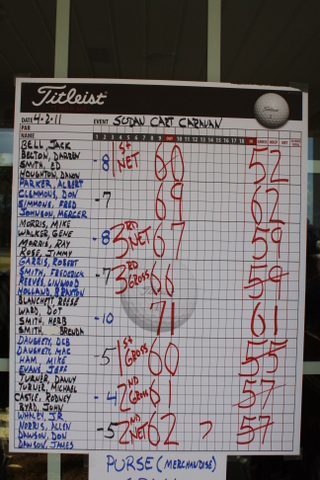 Titleist
DATE 4-2-11 EVENT SUDAN CART CARAVAN
PAR
NAME 1 2 3 4 5 6 7 8 9 OUT 10 11 12 13 14 15 16 17 18 IN
BELL, JACK
BELTON, DARREN
SMITH, ED
HOUGHTON, DAMON
-8 1ST NET 60 52
PARKER, ALBERT
CLEMMONS, DON
SIMMONS, FRED
JOHNSON, MERCER
-7 69 62
MORRIS, MIKE
WALKER, GENE
MORRIS, RAY
ROSE, JIMMY
-8 3RD NET 67 59
GARRIS, ROBERT
SMITH, FREDERICK
REEVES, LINWOOD
HOLLAND, BRAXTON
-7 3RD GROSS 66 59
BLANCHETT, REESE
WARD, DOT
SMITH, HERB
SMITH, BRENDA
-10 71 61
DAUGHETY, DEB
DAUGHETY, MAC
HAM, MIKE
EVANS, JEFF
-5 1ST GROSS 60 55
TURNER, DANNY
TURNER, MICHAEL
CASTLE, RODNEY
BYRD, JOHN
-4 2ND GROSS 61 57
WHALEY, JR
NORRIS, ALLEN
DAWSON, DON
DAWSON, JAMES
-5 2ND NET 62 57
PURSE (MERCHANDISE)